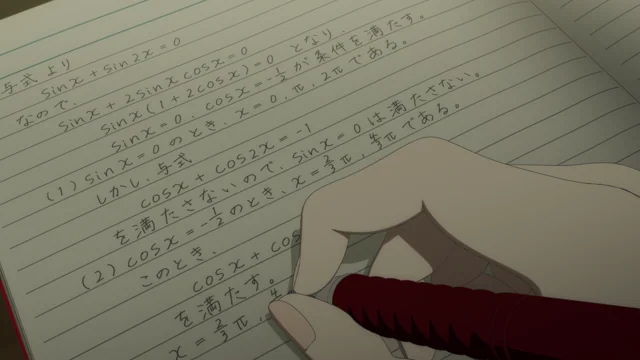 与式より
sinx + sin2x = 0
なので、
sinx + 2sinx cosx = 0
sinx(1 + 2cosx) = 0 となり
sinx = 0, cosx = -1/2 が条件を満たす。
(1) sinx = 0 のとき、x = 0, π, 2π である。
しかし、与式
cosx + cos2x = -1
を満たさないので、sinx = 0 は満たさない。
(2) cosx = -1/2 のとき、x = 2/3 π, 4/3 π である。
このとき、
cosx + cos
を満たす。
x = 2/3 π, 4